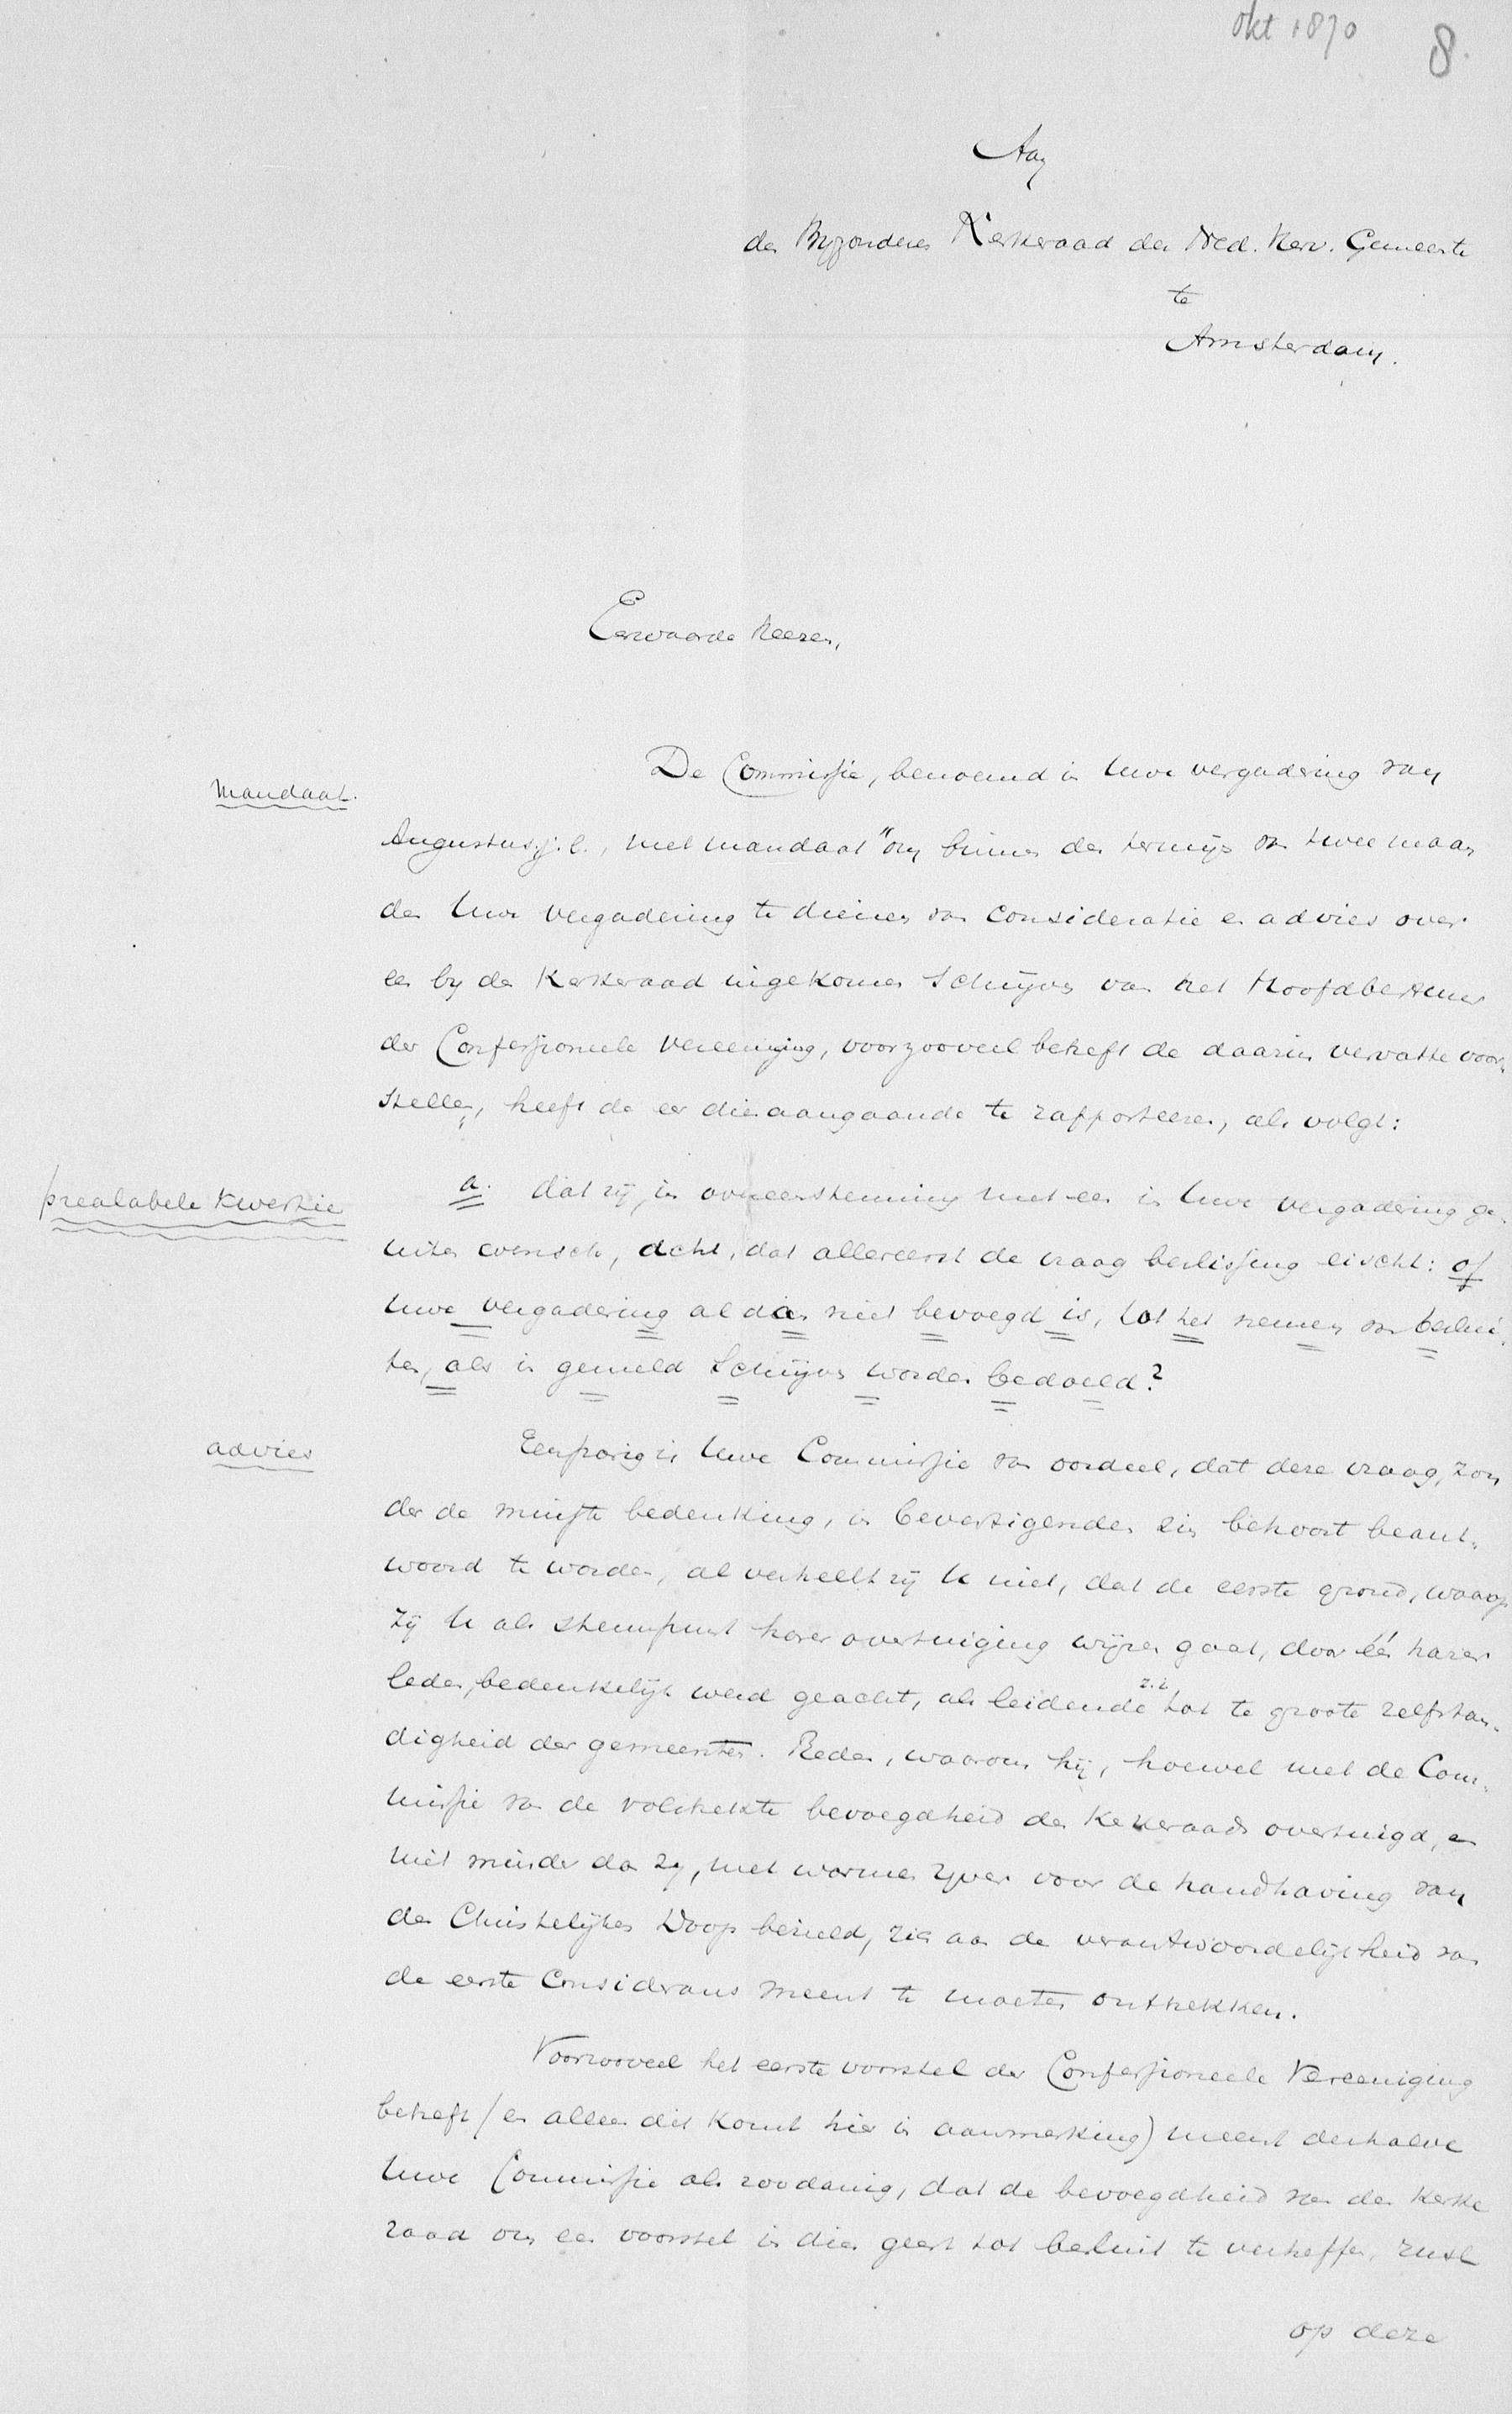 okt 1870 8.
Aan
den Byzonderen Kerkeraad der Ned. Herv. Gemeente
te
Amsterdam.
Eerwaarde Heeren,
De Commissie, benoemd in Uwe vergadering van
Mandaat.
Augustus j.l., met mandaat "om binnen den termijn van twee maan
den Uwe vergadering te dienen van consideratie en advies over
een by den Kerkeraad ingekomen schrijven van het Hoofdbestuur
der Confessioneele Vereeniging, voorzooveel betreft de daarin vervatte voor-
stellen", heeft de eer dienaangaande te rapporteeren, als volgt:
prealabele kwestie
a. dat zij, in overeenstemming met een in Uwe vergadering ge-
uiten wensch, acht, dat allereerst de vraag beslissing eischt: of
Uwe vergadering al dan niet bevoegd is, tot het nemen van beslui-
ten, als in gemeld schrijven worden bedoeld?
advies
Eenparig is Uwe Commissie van oordeel, dat deze vraag, zon
der de minste bedenking, in bevestigenden zin behoort beant-
woord te worden, al verheelt zij U niet, dat de eerste grond, waarop
zij U als steunpunt harer overtuiging wijzen gaat, door één harer
leden, bedenkelijk werd geacht, als leidende z.i. tot te groote zelfstan-
digheid der gemeenten. Reden, waarom hij, hoewel met de Com-
missie van de volstrekte bevoegdheid des Kerkeraads overtuigd, en
niet minder dan zy, met warmen yver voor de handhaving van
den Christelijken Doop bezield, zich aan de verantwoordelijkheid van
de eerste Considerans meent te moeten onttrekken.
Voorzooveel het eerste voorstel der Confessioneele Vereeniging
betreft (en alleen dit komt hier in aanmerking) meent derhalve
Uwe Commissie als zoodanig, dat de bevoegdheid van den Kerke
raad om een voorstel in dien geest tot besluit te verheffen, rust
op deze